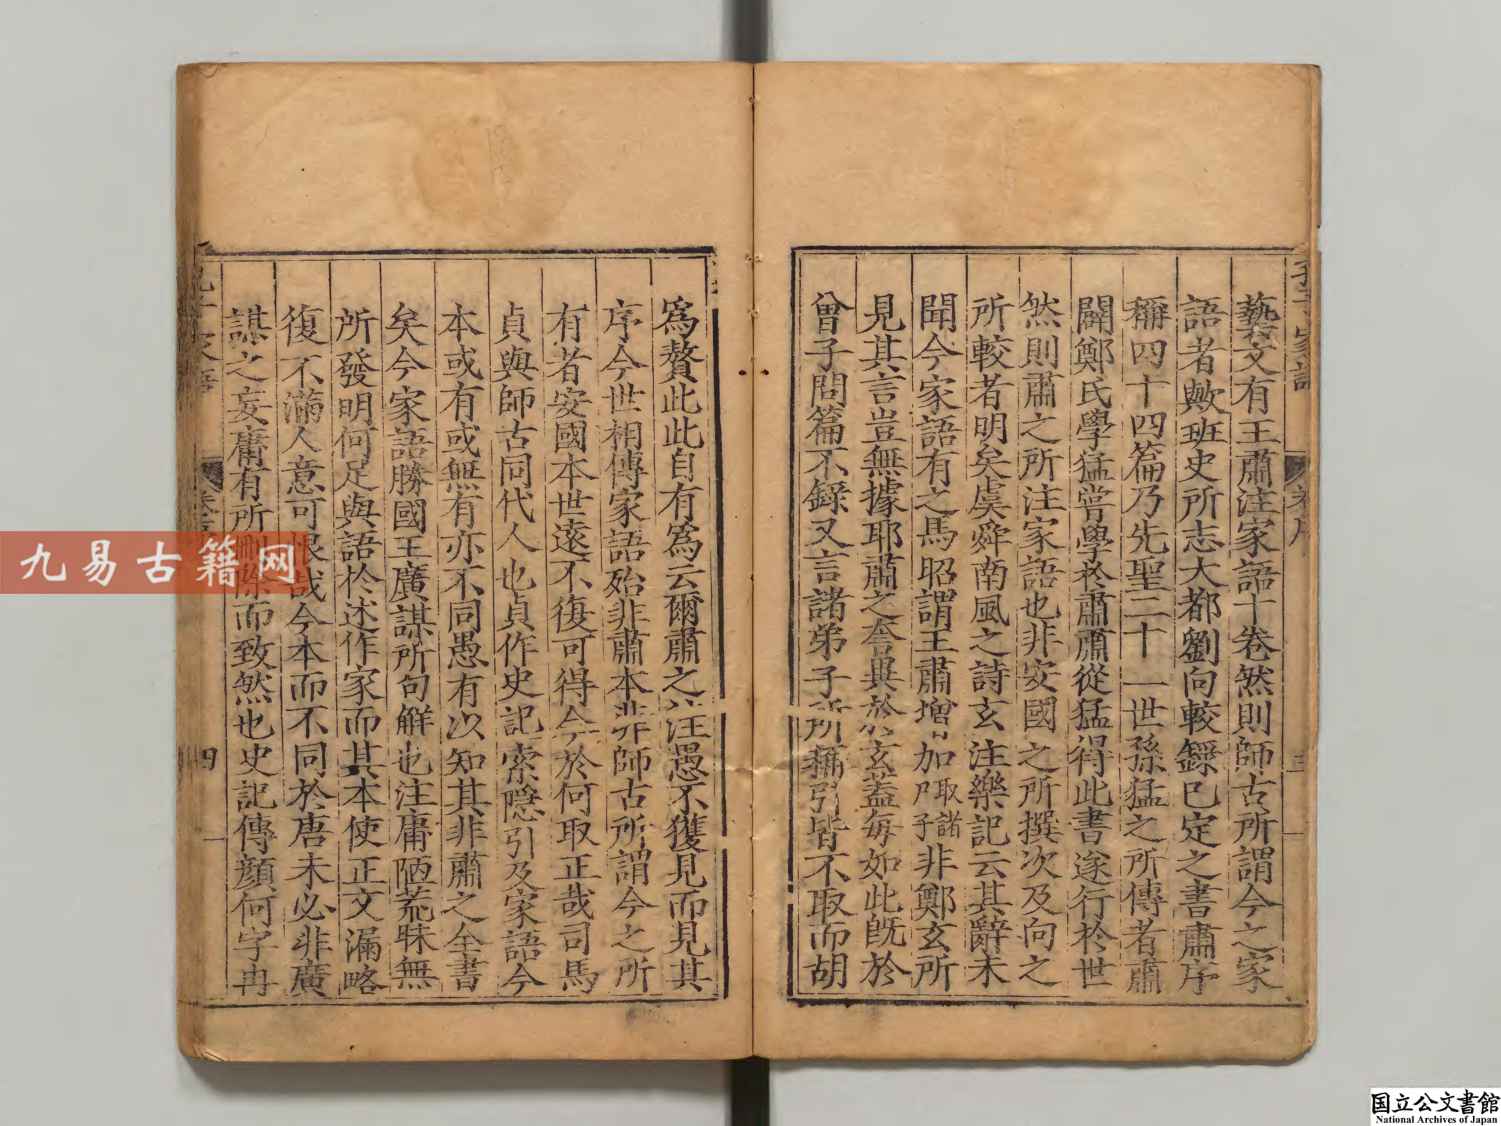 藝文有王肅注家語十卷然則師古所謂今之家
語者歟班史所志大都劉向較錄已定之書肅序
稱四十四篇乃先聖二十二世孫猛之所傳者肅
闢鄭氏學猛嘗學於肅肅從猛得此書遂行於世
然則肅之所注家語也非安國之所撰次及向之
所較者明矣虞舜南風之詩玄注樂記云其辭未
聞今家語有之馬昭謂王肅增加乃取諸子非鄭玄所
見其言豈無據耶肅之舍異於玄蓋每如此既於
曾子問篇不錄又言諸弟子所稱引皆不取而胡
孔子家語
卷序
三
為贅此此自有為云爾肅之注愚不獲見而見其
序今世相傳家語殆非肅本非師古所謂今之所
有者安國本世遠不復可得今於何取正哉司馬
貞與師古同代人也貞作史記索隱引及家語今
本或有或無有亦不同愚有以知其非肅之全書
矣今家語勝國王廣謀所句解也注庸陋荒昧無
所發明何足與語於述作家而其本使正文漏略
復不滿人意可恨哉今本而不同於唐未必非廣
謀之妄庸有所刪除而致然也史記傳顏何字冉
四
九易古籍网
国立公文書館
National Archives of Japan